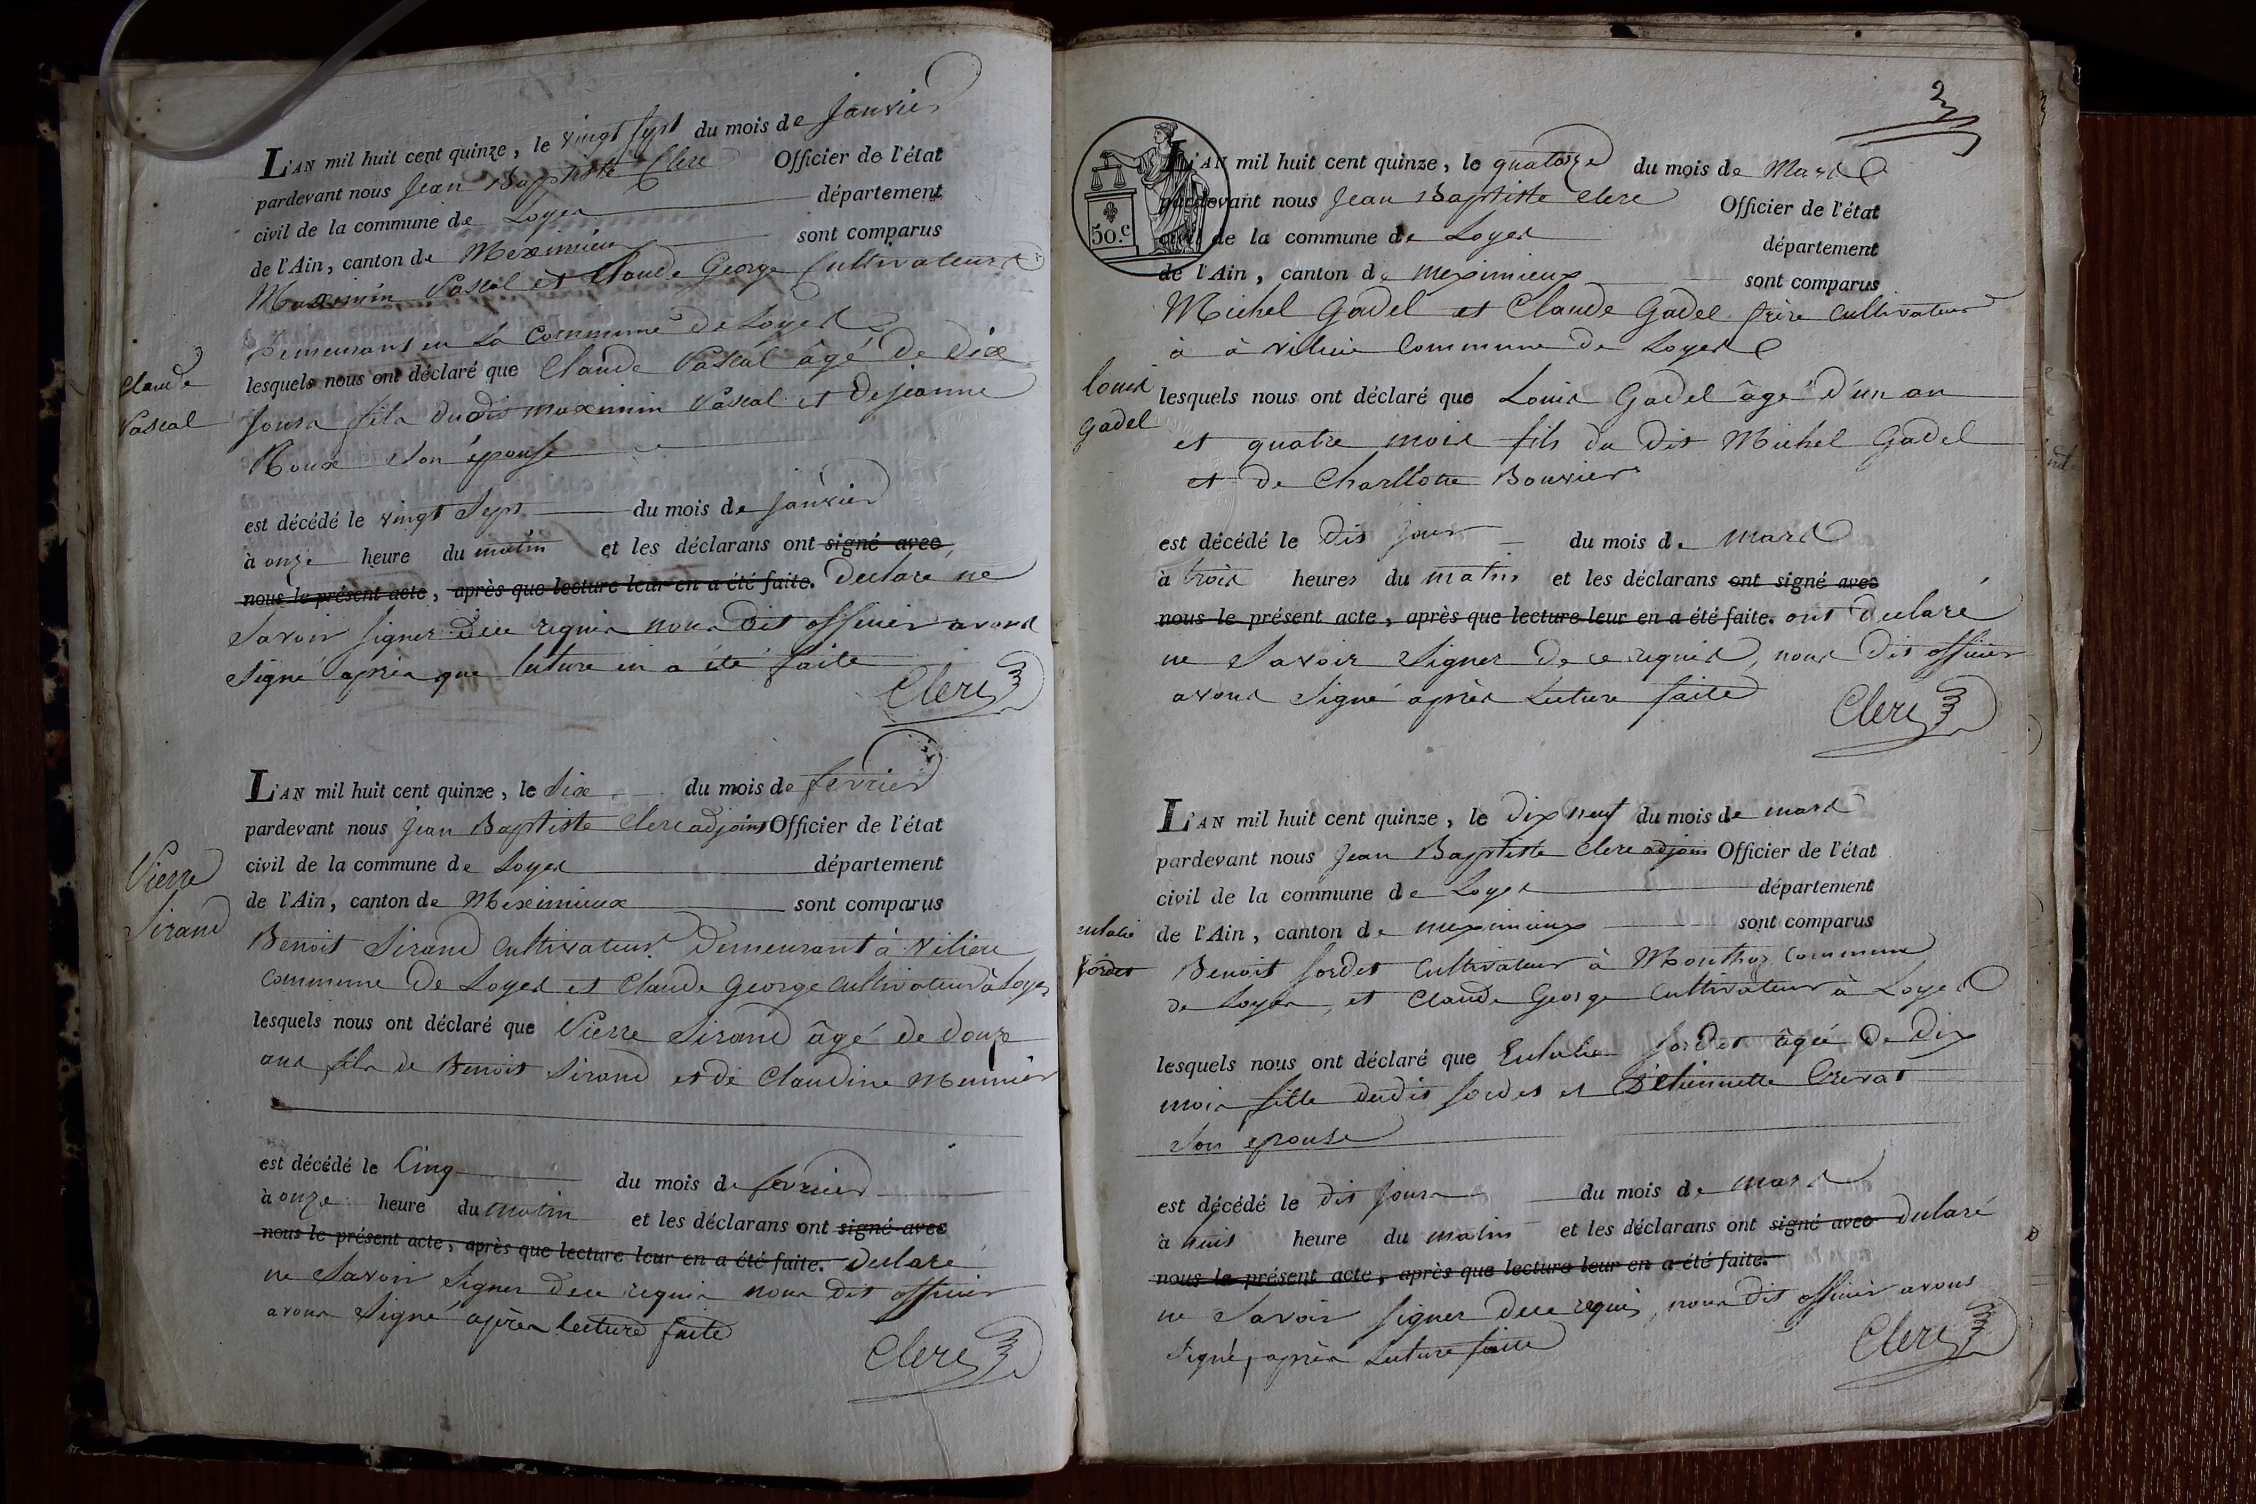 L'AN mil huit cent quinze, le vingt sept du mois de Janvier
pardevant nous Jean Baptiste Clerc Officier de l'état
civil de la commune de Loyes département
de l'Ain, canton de Meximieux sont comparus
Maximin Pascal et Claude George Cultivateurs
Demeurant en la Commune de Loyes
Claude
Pascal
lesquels nous ont déclaré que Claude Pascal âgé de dix
Jours fils dudit maximin Pascal et de jeanne
Roux son épouse
est décédé le vingt Sept du mois de janvier
à onze heure du matin et les déclarans ont signé avec
nous le présent acte, après que lecture leur en a été faite. Declare ne
Savoir signer dece requis nous dit officier avons
Signé après que lecture en a été faite
Clerc
L'AN mil huit cent quinze, le Six du mois de fevrier
pardevant nous Jean Baptiste Clerc adjoint Officier de l'état
civil de la commune de Loyes département
de l'Ain, canton de Meximieux sont comparus
Pierre
Sirand
Benoit Sirand Cultivateur Demeurant à Vilieu
Commune de Loyes et Claude George Cultivateur à Loyes
lesquels nous ont déclaré que Pierre Sirand âgé de Douze
ans fils de Benoit Sirand et de Claudine Meunier
est décédé le Cinq du mois de fevrier
à onze heure du matin et les déclarans ont signé avec
nous le présent acte, après que lecture leur en a été faite. Declaré
ne Savoir Signer dece requis nous dit officier
avons Signé après lecture faite
Clerc
2
50.c
L'AN mil huit cent quinze, le quatorze du mois de Mars
pardevant nous Jean Baptiste Clerc Officier de l'état
civil de la commune de Loyes département
de l'Ain, canton de meximieux sont comparus
Michel Gadel et Claude Gadel frère Cultivateur
à à Vilieu Commune de Loyes
louis
gadel
lesquels nous ont déclaré que Louis Gadel âgé d'un an
et quatre mois fils du dit Michel Gadel
et de Charllotte Bouvier
est décédé le dit jour du mois de mars
à trois heures du matin et les déclarans ont signé avec
nous le présent acte, après que lecture leur en a été faite. ont declaré
ne Savoir Signer de ce requis, nous dit officier
avons Signé après Lecture faite
Clerc
L'AN mil huit cent quinze, le dix neuf du mois de mars
pardevant nous Jean Baptiste Clerc adjoint Officier de l'état
civil de la commune de Loyes département
de l'Ain, canton de meximieux sont comparus
eulalie
Sordet
Benoit Sordet Cultivateur à Monthoz Commune
de Loyes, et Claude George Cultivateur à Loyes
lesquels nous ont déclaré que Eulalie Sordet âgée de dix
mois fille dudit Sordet et D'ethiennette Crevat
Son epouse
est décédé le dit jour du mois de mars
à huit heure du matin et les déclarans ont signé avec declaré
nous le présent acte, après que lecture leur en a été faite.
ne Savoir Signer dece requis, nous dit officier avons
Signé, après Lecture faite
Clerc